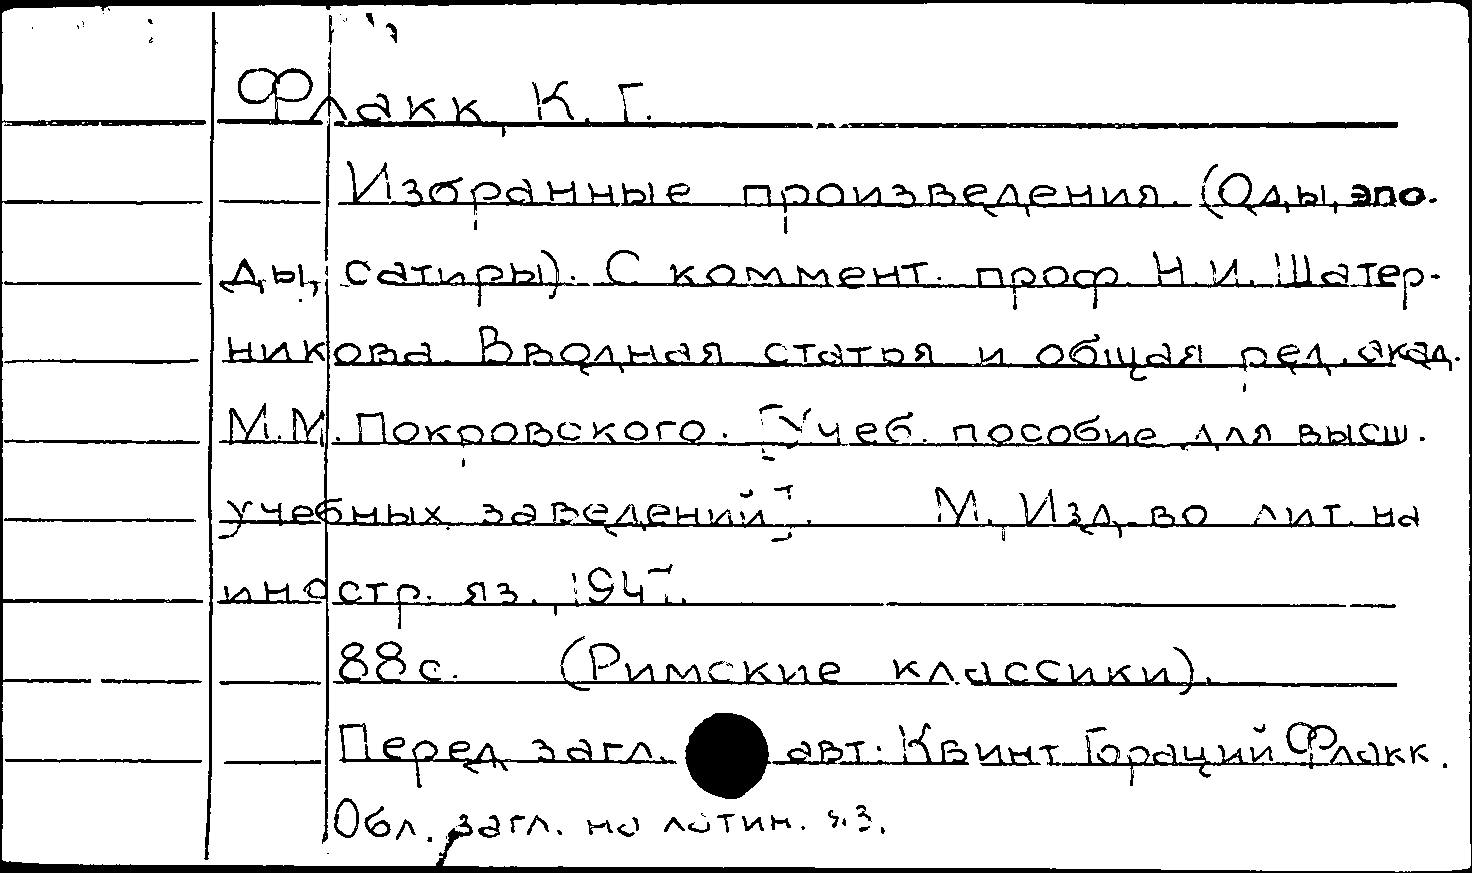 Флакк, К. Г.
Избранные произведения. (Оды, эпо-
ды, сатиры). С коммент. проф. Н. И. Шатер-
никова. Вводная статья и общая ред. акад.
М. М. Покровского. [Учеб. пособие для высш.
учебных заведений]. М., Изд-во лит. на
иностр. яз., 1947.
88 с. (Римские классики).
Перед загл. авт: Квинт Гораций Флакк.
Обл. загл. на латин. яз.